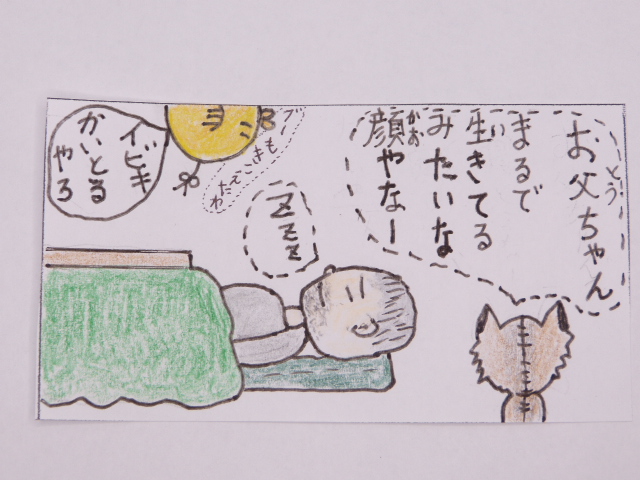 お父ちゃん
とう
まるで
生きてる
い
みたいな
顔やなー
かお
ZZZ
もきこえたわ
イビキ
かいとる
やろ